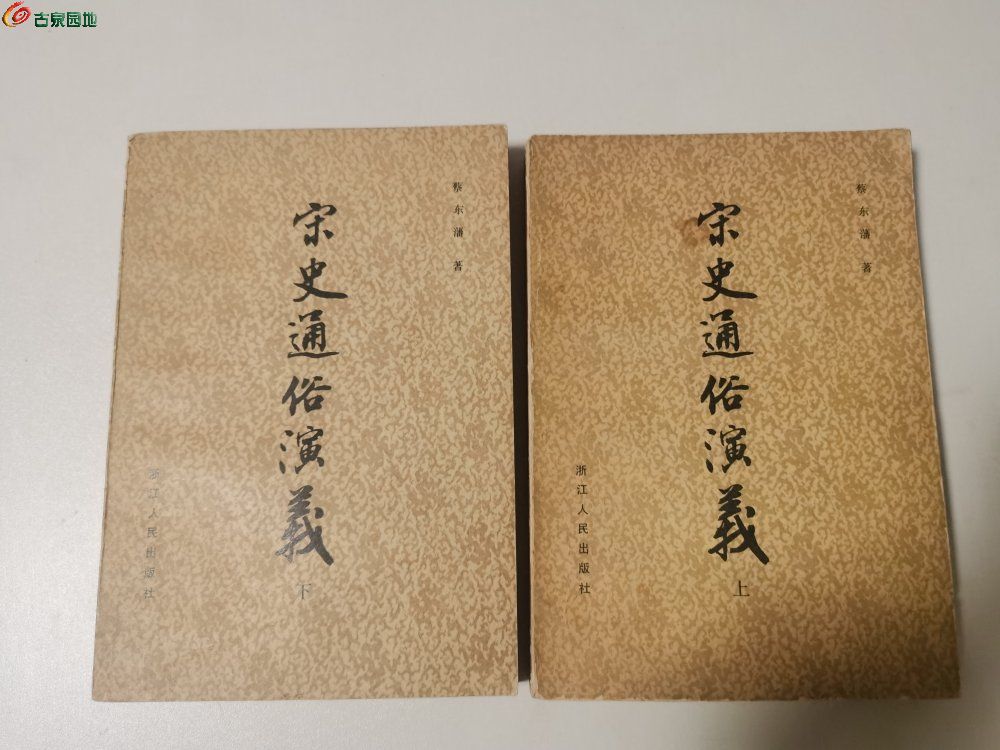 古泉园地
蔡东藩 著
宋史通俗演義
下
浙江人民出版社
蔡东藩 著
宋史通俗演義
上
浙江人民出版社